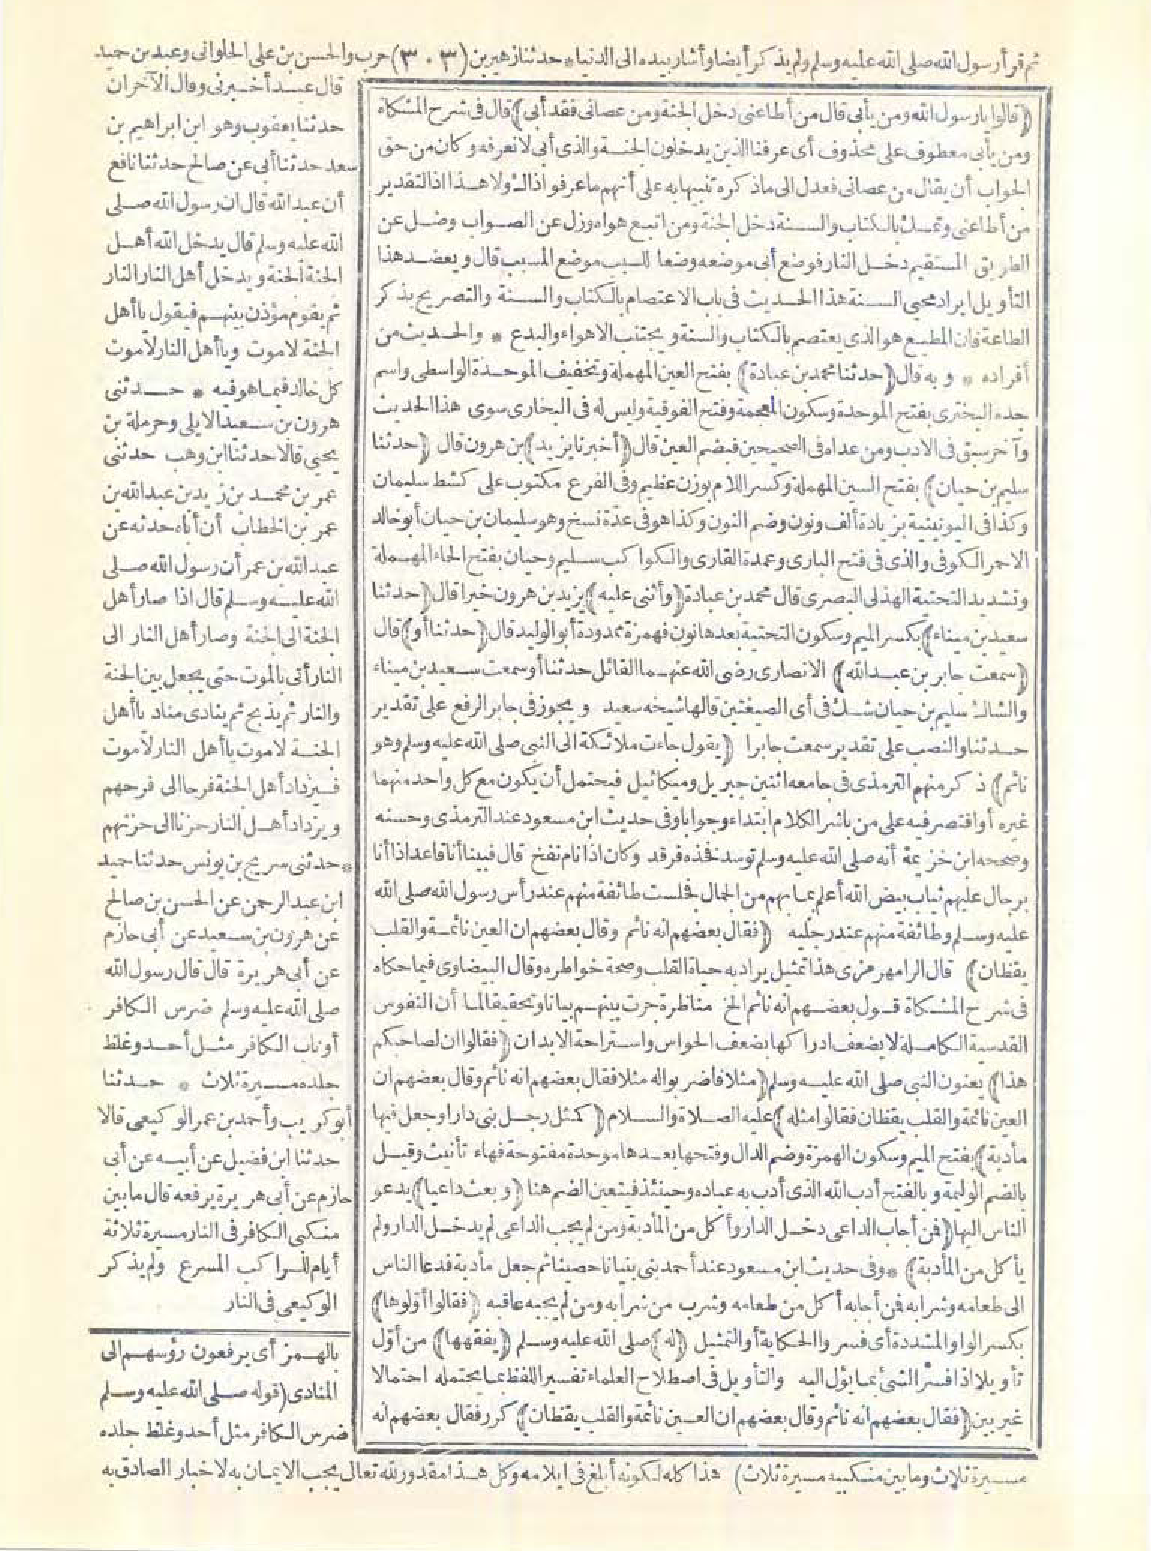 ثم قرأ رسول الله صلى الله عليه وسلم ولم يذكر أيضا وأشار بيده الى الدنيا * حدثنا زهير بن (٣٠٣) حرب والحسن بن على الحلوانى وعبد بن حميد
قال عبد أخبرنى وقال الآخران
حدثنا يعقوب وهو ابن ابراهيم بن
سعد حدثنا أبى عن صالح حدثنا نافع
أن عبد الله قال ان رسول الله صلى
الله عليه وسلم قال يدخل الله أهل
الجنة الجنة ويدخل أهل النار النار
ثم يقوم مؤذن بينهم فيقول يا أهل
الجنة لاموت ويا أهل النار لاموت
كل خالد فيما هو فيه * حدثنى
هرون بن سعيد الايلى وحرملة بن
يحيى قالا حدثنا ابن وهب حدثنى
عمر بن محمد بن زيد بن عبد الله بن
عمر بن الخطاب أن أباه حدثه عن
عبد الله بن عمر أن رسول الله صلى
الله عليه وسلم قال اذا صار أهل
الجنة الى الجنة وصار أهل النار الى
النار أتى بالموت حتى يجعل بين الجنة
والنار ثم يذبح ثم ينادى مناد يا أهل
الجنة لاموت يا أهل النار لاموت
فيزداد أهل الجنة فرحا الى فرحهم
ويزداد أهل النار حزنا الى حزنهم
* حدثنى سريج بن يونس حدثنا حميد
ابن عبد الرحمن عن الحسن بن صالح
عن هرون بن سعيد عن أبى حازم
عن أبى هريرة قال قال رسول الله
صلى الله عليه وسلم ضرس الكافر
أو ناب الكافر مثل أحد وغلظ
جلده مسيرة ثلاث * حدثنا
أبو كريب وأحمد بن عمر الوكيعى قالا
حدثنا ابن فضيل عن أبيه عن أبى
حازم عن أبى هريرة يرفعه قال ما بين
منكبى الكافر فى النار مسيرة ثلاثة
أيام للراكب المسرع ولم يذكر
الوكيعى فى النار
بالهمز أى يرفعون رؤسهم الى
المنادى (قوله صلى الله عليه وسلم
ضرس الكافر مثل أحد وغلظ جلده
مسيرة ثلاث وما بين منكبيه مسيرة ثلاث) هذا كله لكونه أبلغ فى ايلامه وكل هذا مقدور لله تعالى يجب الايمان به لاخبار الصادق به
(قالوا يا رسول الله ومن يأبى قال من أطاعنى دخل الجنة ومن عصانى فقد أبى) قال فى شرح المشكاة
ومن يأبى معطوف على محذوف أى عرفنا الذين يدخلون الجنة والذى أبى لا نعرفه وكان من حق
الجواب أن يقال من عصانى فعدل الى ما ذكره تنبيها به على أنهم ما عرفوا ذاك ولا هذا اذ التقدير
من أطاعنى وتمسك بالكتاب والسنة دخل الجنة ومن اتبع هواه وزل عن الصواب وضل عن
الطريق المستقيم دخل النار فوضع أبى موضعه وضعا للسبب موضع المسبب قال ويعضد هذا
التأويل ايراد محيى السنة هذا الحديث فى باب الاعتصام بالكتاب والسنة والتصريح بذكر
الطاعة فان المطيع هو الذى يعتصم بالكتاب والسنة ويجتنب الاهواء والبدع * والحديث من
أفراده * وبه قال (حدثنا محمد بن عبادة) بفتح العين المهملة وتخفيف الموحدة الواسطى واسم
جده البخترى بفتح الموحدة وسكون المعجمة وفتح الفوقية وليس له فى البخارى سوى هذا الحديث
وآخر سبق فى الادب ومن عداه فى الصحيحين فبضم العين قال (أخبرنا يزيد) بن هرون قال (حدثنا
سليم بن حيان) بفتح السين المهملة وكسر اللام بوزن عظيم وفى الفرع مكتوب على كشط سليمان
وكذا فى اليونينية بزيادة ألف ونون وضم النون وكذا هو فى عدة نسخ وهو سليمان بن حيان أبو خالد
الاحمر الكوفى والذى فى فتح البارى وعمدة القارى والكواكب سليم وحيان بفتح الحاء المهملة
وتشديد التحتية الهذلى البصرى قال محمد بن عبادة (وأثنى عليه) يزيد بن هرون خيرا قال (حدثنا
سعيد بن ميناء) بكسر الميم وسكون التحتية بعدها نون فهمزة ممدودة أبو الوليد قال (حدثنا أو) قال
(سمعت جابر بن عبد الله) الانصارى رضى الله عنهما القائل حدثنا أو سمعت سعيد بن ميناء
والشاك سليم بن حيان شك فى أى الصيغتين قالها شيخه سعيد ويجوز فى جابر الرفع على تقدير
حدثنا والنصب على تقدير سمعت جابرا (يقول جاءت ملائكة الى النبى صلى الله عليه وسلم وهو
نائم) ذكر منهم الترمذى فى جامعه اثنين جبريل وميكائيل فيحتمل أن يكون مع كل واحد منهما
غيره أو اقتصر فيه على من باشر الكلام ابتداء وجوابا وفى حديث ابن مسعود عند الترمذى وحسنه
وصححه ابن خزيمة أنه صلى الله عليه وسلم توسد فخذه فرقد وكان اذا نام نفخ قال فبينا أنا قاعد اذا أنا
برجال عليهم ثياب بيض الله أعلم بما بهم من الجمال فجلست طائفة منهم عند رأس رسول الله صلى الله
عليه وسلم وطائفة منهم عند رجليه (فقال بعضهم انه نائم وقال بعضهم ان العين نائمة والقلب
يقظان) قال الرامهرمزى هذا تمثيل يراد به حياة القلب وصحة خواطره وقال البيضاوى فيما حكاه
فى شرح المشكاة قول بعضهم انه نائم الخ مناظرة جرت بينهم بيانا وتحقيقا لما أن النفوس
القدسية الكاملة لا يضعف ادراكها بضعف الحواس واستراحة الابدان (فقالوا ان لصاحبكم
هذا) يعنون النبى صلى الله عليه وسلم (مثلا فاضربوا له مثلا فقال بعضهم انه نائم وقال بعضهم ان
العين نائمة والقلب يقظان فقالوا مثله) عليه الصلاة والسلام (كمثل رجل بنى دارا وجعل فيها
مأدبة) بفتح الميم وسكون الهمزة وضم الدال وفتحها بعدها موحدة مفتوحة فهاء تأنيث وقيل
بالضم الوليمة وبالفتح أدب الله الذى أدب به عباده وحينئذ فيتعين الضم هنا (وبعث داعيا) يدعو
الناس اليها (فمن أجاب الداعى دخل الدار وأكل من المأدبة ومن لم يجب الداعى لم يدخل الدار ولم
يأكل من المأدبة) * وفى حديث ابن مسعود عند أحمد بنى بنيانا حصينا ثم جعل مأدبة فدعا الناس
الى طعامه وشرابه فمن أجابه أكل من طعامه وشرب من شرابه ومن لم يجبه عاقبه (فقالوا أولوها)
بكسر الواو المشددة أى فسروا الحكاية أو التمثيل (له) صلى الله عليه وسلم (يفقهها) من أول
تأويلا اذا فسر الشئ بما يؤل اليه والتأويل فى اصطلاح العلماء تفسير اللفظ بما يحتمله احتمالا
غير بين (فقال بعضهم انه نائم وقال بعضهم ان العين نائمة والقلب يقظان) كرر فقال بعضهم انه